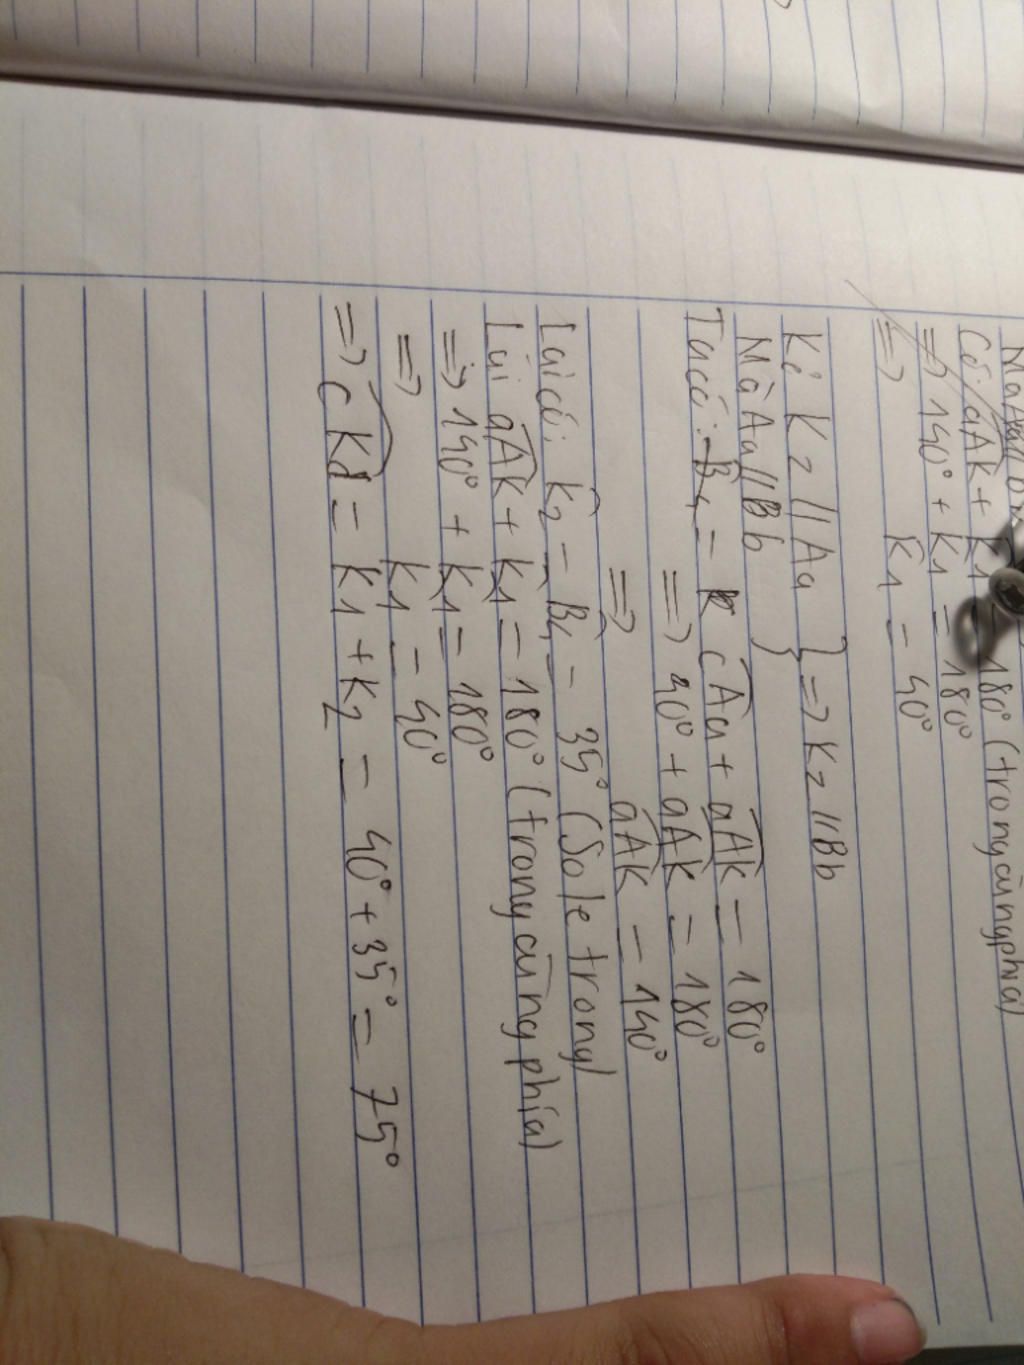 Có: aAK + K1 = 180° (trong cùng phía)
=> 140° + K1 = 180°
=> K1 = 40°
Kẻ Kz // Aa } => Kz // Bb
Mà Aa // Bb
Ta có: B1 = K cAa + aAK = 180°
=> 40° + aAK = 180°
=> aAK = 140°
Lại có: K2 = B1 = 35° (So le trong)
Lại aAK + K1 = 180° (trong cùng phía)
=> 140° + K1 = 180°
=> K1 = 40°
=> cKd = K1 + K2 = 40° + 35° = 75°